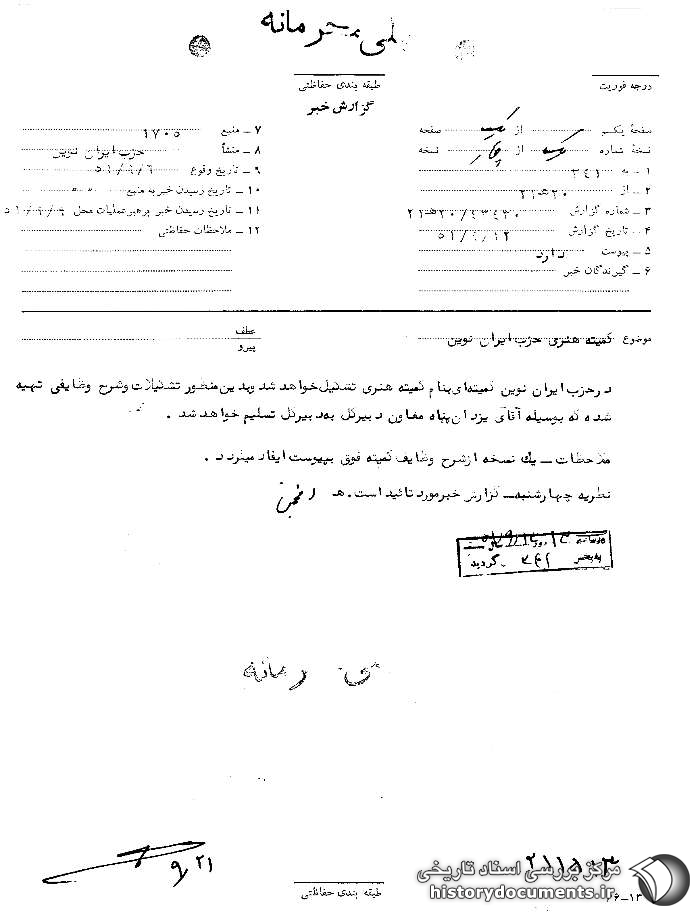 درجه فوریت
طبقه بندی حفاظتی
گزارش خبر
صفحهٔ یکم از یک صفحه
نسخهٔ شماره یک از نسخه
۱ ـ به ۳۴۱
۲ ـ از ۲۰ ه‍ ۲۲
۳ ـ شماره گزارش ۲۲ ه‍ ۲۰/
۴ ـ تاریخ گزارش
۵ ـ پیوست دارد
۶ ـ گیرندگان خبر
۷ ـ منبع ۱۷۰۵
۸ ـ منشأ حزب ایران نوین
۹ ـ تاریخ وقوع
۱۰ ـ تاریخ رسیدن خبر به منبع
۱۱ ـ تاریخ رسیدن خبر برهبر عملیات محل
۱۲ ـ ملاحظات حفاظتی
موضوع کمیته هنری حزب ایران نوین
عطف
پیرو
در حزب ایران نوین کمیته‌ای بنام کمیته هنری تشکیل خواهد شد و بدین منظور تشکیلات و شرح وظایفی تهیه
شده که بوسیله آقای یزدان پناه معاون دبیرکل به دبیرکل تسلیم خواهد شد .
ملاحظات ـ یک نسخه از شرح وظایف کمیته فوق بپیوست ایفاد میگردد .
نظریه چهارشنبه ـ گزارش خبر مورد تائید است . هـ
به بخش ۳۴۱ گردید
۹/۲۱
طبقه بندی حفاظتی
مرکز بررسی اسناد تاریخی
historydocuments.ir